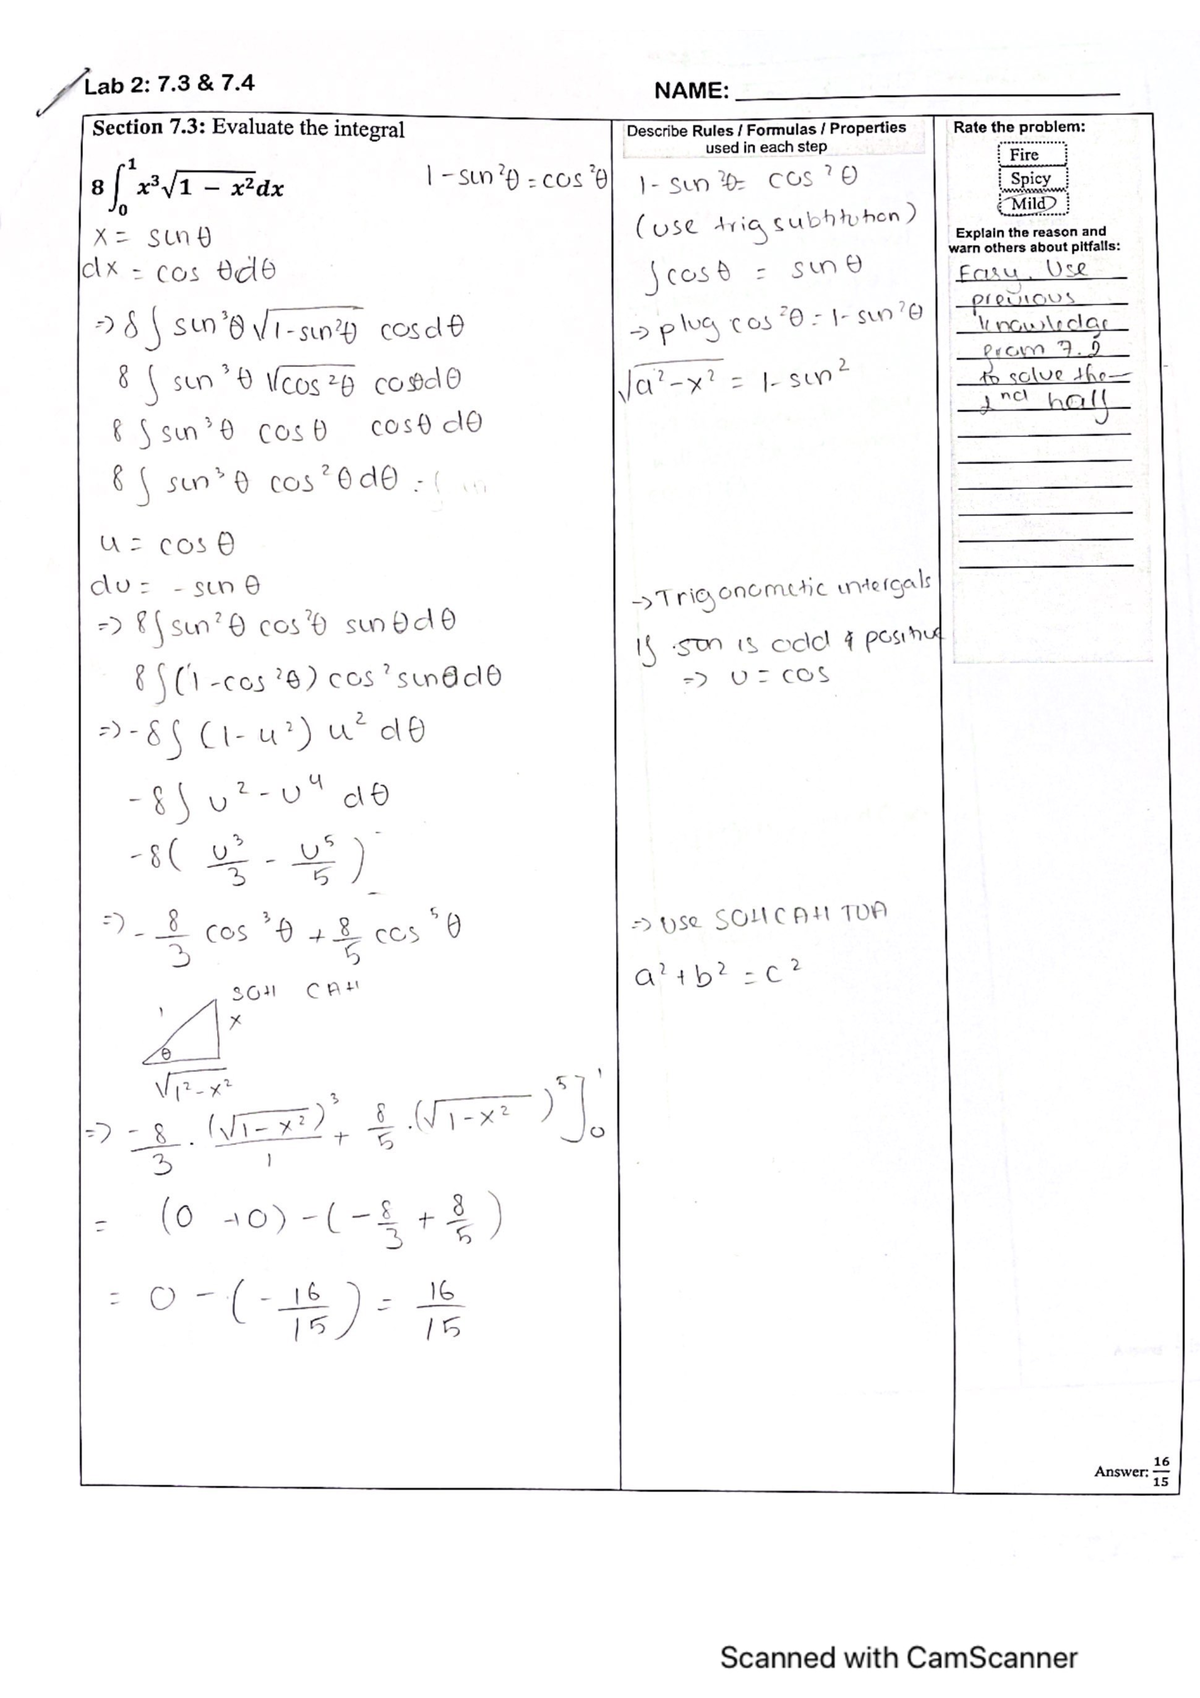 Lab 2: 7.3 & 7.4
NAME:
Section 7.3: Evaluate the integral
8 ∫₀¹ x³√(1 − x²)dx
1 - sin²θ = cos²θ
x = sinθ
dx = cos θdθ
=> 8 ∫ sin³θ √(1-sin²θ) cosdθ
8 ∫ sin³θ √(cos²θ) cosθdθ
8 ∫ sin³θ cosθ cosθ dθ
8 ∫ sin³θ cos²θdθ =
u = cosθ
du = - sinθ
=> 8∫sin²θ cos²θ sinθdθ
8∫(1-cos²θ) cos² sinθdθ
=> -8∫ (1-u²) u² dθ
-8∫ u² - u⁴ dθ
-8( u³/3 - u⁵/5 )
=> - 8/3 cos³θ + 8/5 cos⁵θ
SOH CAH
1
x
θ
√(1²-x²)
=> -8/3 · (√(1-x²))³/1 + 8/5 · (√(1-x²))⁵]₀¹
= (0 +0) - (- 8/3 + 8/5)
= 0 - (- 16/15) = 16/15
Describe Rules / Formulas / Properties
used in each step
1 - sin²θ = cos²θ
(use trig subtitution)
∫cosθ = sinθ
-> plug cos²θ = 1-sin²θ
√(a²-x²) = 1-sin²
-> Trigonometic intergals
If sin is odd & positive
=> u = cos
=> use SOHCAH TOA
a² + b² = c²
Rate the problem:
Fire
Spicy
Mild
Explain the reason and
warn others about pitfalls:
Easy. Use
previous
knowledge
from 7.2
to solve the
2nd half
Answer: 16/15
Scanned with CamScanner